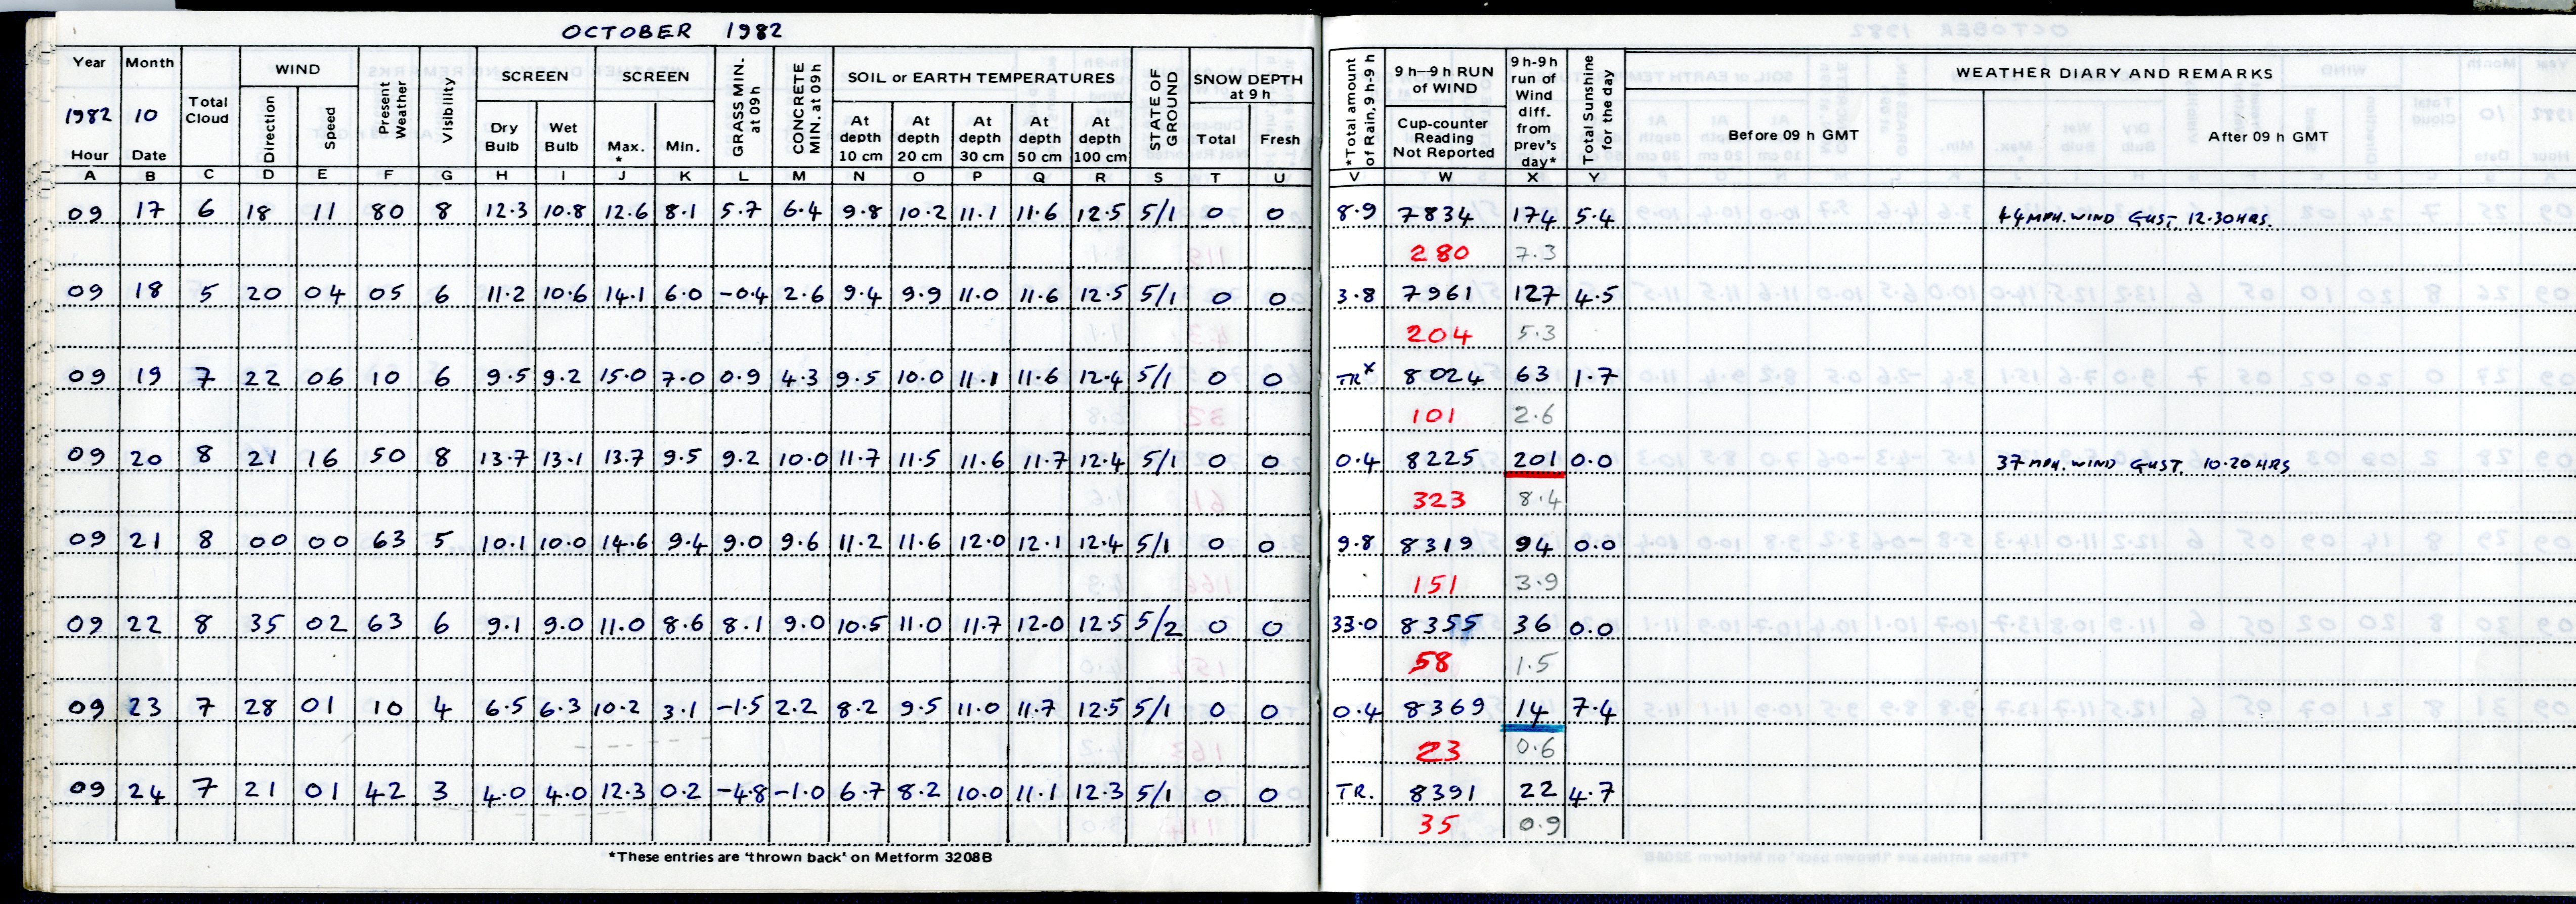 OCTOBER 1982
Year Month WIND SCREEN SCREEN SOIL or EARTH TEMPERATURES SNOW DEPTH at 9 h
1982 10 Total Cloud Direction Speed Present Weather Visibility Dry Bulb Wet Bulb Max. * Min. GRASS MIN. at 09h CONCRETE MIN. at 09h At depth 10 cm At depth 20 cm At depth 30 cm At depth 50 cm At depth 100 cm STATE OF GROUND Total Fresh
Hour Date
*Total amount of Rain, 9h-9h 9h-9h RUN of WIND Cup-counter Reading Not Reported 9h-9h run of Wind diff. from prev's day* Total Sunshine for the day WEATHER DIARY AND REMARKS
Before 09 h GMT After 09 h GMT
A B C D E F G H I J K L M N O P Q R S T U V W X Y
09 17 6 18 11 80 8 12.3 10.8 12.6 8.1 5.7 6.4 9.8 10.2 11.1 11.6 12.5 5/1 0 0 8.9 7834 174 5.4 44 MPH. WIND GUST, 12.30 HRS.
280 7.3
09 18 5 20 04 05 6 11.2 10.6 14.1 6.0 -0.4 2.6 9.4 9.9 11.0 11.6 12.5 5/1 0 0 3.8 7961 127 4.5
204 5.3
09 19 7 22 06 10 6 9.5 9.2 15.0 7.0 0.9 4.3 9.5 10.0 11.1 11.6 12.4 5/1 0 0 TRx 8024 63 1.7
101 2.6
09 20 8 21 16 50 8 13.7 13.1 13.7 9.5 9.2 10.0 11.7 11.5 11.6 11.7 12.4 5/1 0 0 0.4 8225 201 0.0 37 MPH. WIND GUST, 10.20 HRS
323 8.4
09 21 8 00 00 63 5 10.1 10.0 14.6 9.4 9.0 9.6 11.2 11.6 12.0 12.1 12.4 5/1 0 0 9.8 8319 94 0.0
151 3.9
09 22 8 35 02 63 6 9.1 9.0 11.0 8.6 8.1 9.0 10.5 11.0 11.7 12.0 12.5 5/2 0 0 33.0 8355 36 0.0
58 1.5
09 23 7 28 01 10 4 6.5 6.3 10.2 3.1 -1.5 2.2 8.2 9.5 11.0 11.7 12.5 5/1 0 0 0.4 8369 14 7.4
23 0.6
09 24 7 21 01 42 3 4.0 4.0 12.3 0.2 -4.8 -1.0 6.7 8.2 10.0 11.1 12.3 5/1 0 0 TR. 8391 22 4.7
35 0.9
*These entries are 'thrown back' on Metform 3208B